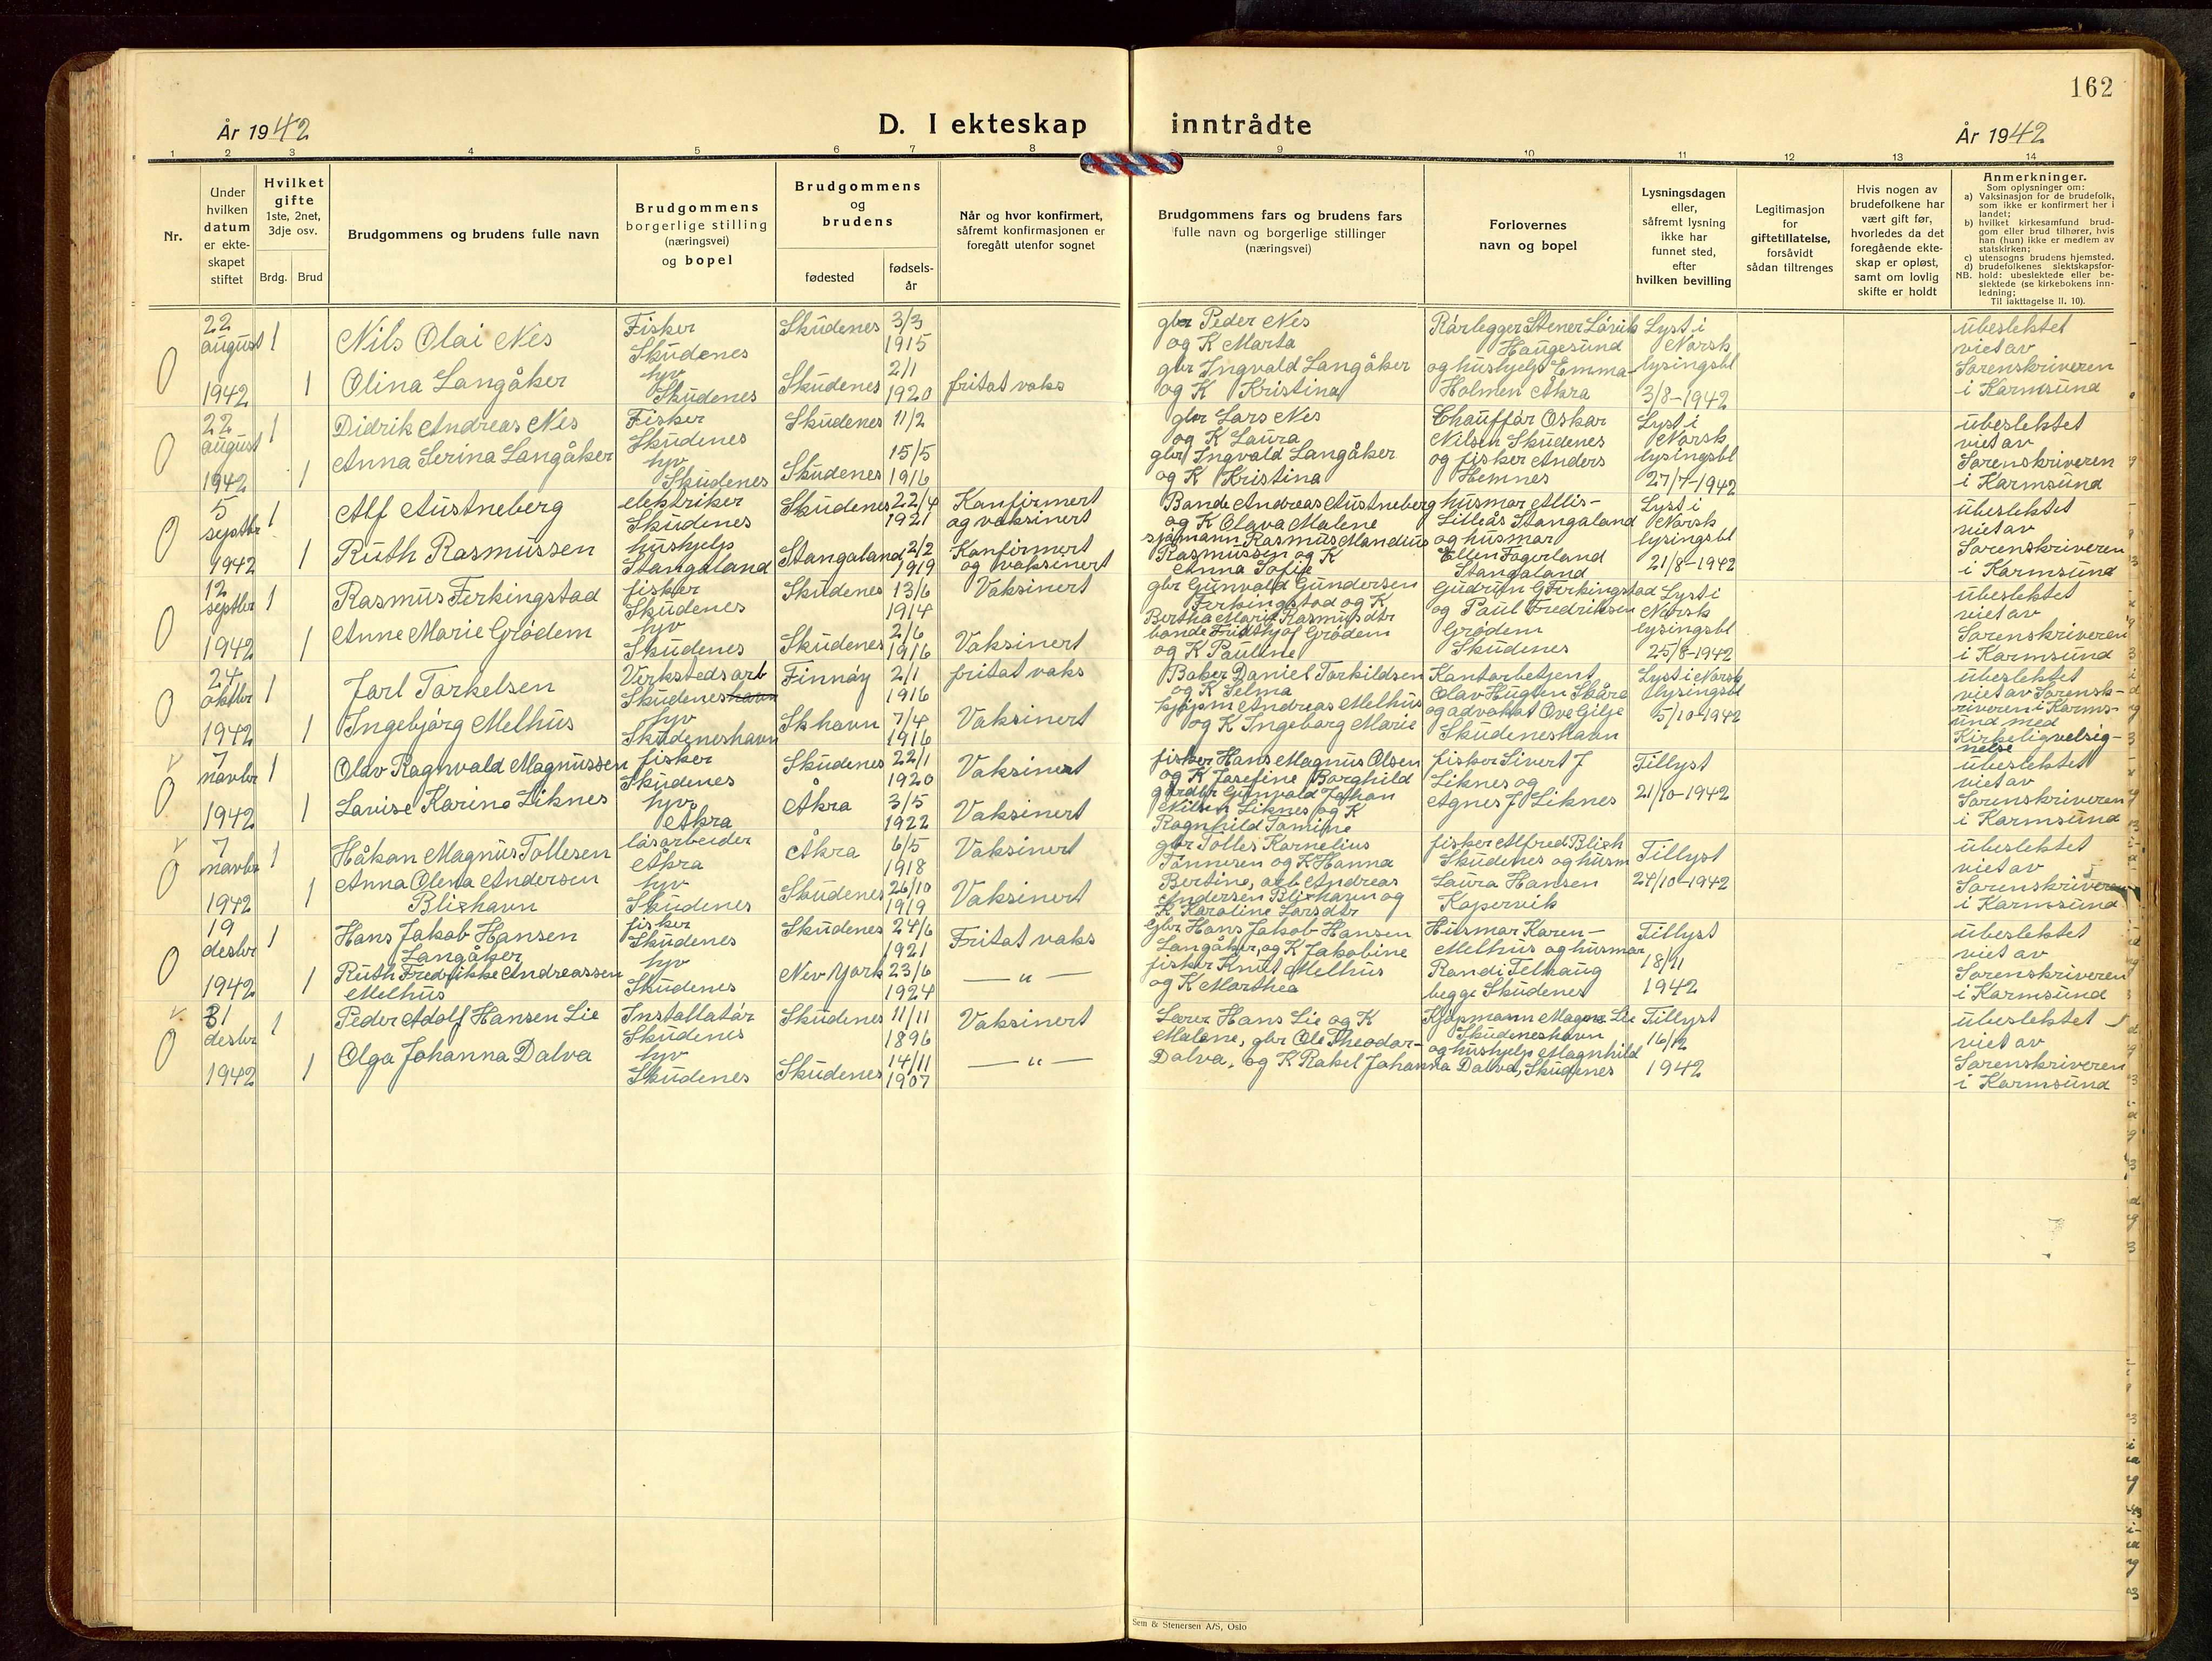 162
År 1942
D. I ekteskap inntrådte
År 1942
1 2 3 4 5 6 7 8 9 10 11 12 13 14
Nr.
Under
hvilken
datum
er ekte-
skapet
stiftet
Hvilket
gifte
1ste, 2net,
3dje osv.
Brdg. Brud
Brudgommens og brudens fulle navn
Brudgommens
borgerlige stilling
(næringsvei)
og bopel
Brudgommens
og
brudens
fødested
fødsels-
år
Når og hvor konfirmert,
såfremt konfirmasjonen er
foregått utenfor sognet
Brudgommens fars og brudens fars
fulle navn og borgerlige stillinger
(næringsvei)
Forlovernes
navn og bopel
Lysningsdagen
eller,
såfremt lysning
ikke har
funnet sted,
efter
hvilken bevilling
Legitimasjon
for
giftetillatelse,
forsåvidt
sådan tiltrenges
Hvis nogen av
brudefolkene har
vært gift før,
hvorledes da det
foregående ekte-
skap er opløst,
samt om lovlig
skifte er holdt
Anmerkninger.
Som oplysninger om:
a) Vaksinasjon for de brudefolk,
som ikke er konfirmert her i
landet;
b) hvilket kirkesamfund brud-
gom eller brud tilhører, hvis
han (hun) ikke er medlem av
statskirken;
c) utensogns brudens hjemsted.
d) brudefolkenes slektskapsfor-
NB. hold: ubeslektede eller be-
slektede (se kirkebokens inn-
ledning;
Til iakttagelse II. 10).
0
22
august
1942
1
1
Nils Olai Nes
Olina Langåker
Fisker
Skudenes
hjv
Skudenes
Skudenes
Skudenes
3/3
1915
2/1
1920
fritat vaks
gbr Peder Nes
og K Marta
gbr Ingvald Langåker
og K Kristina
Rørlegger Stener
Haugesund
og hushjelp Emma
Holmen Åkra
Lyst i
Norsk
lysingsbl
3/8-1942
ubeslektet
viet av
Sorenskriveren
i Karmsund
0
22
august
1942
1
1
Didrik Andreas Nes
Anna Serina Langåker
Fisker
Skudenes
hjv
Skudenes
Skudenes
Skudenes
11/2
15/5
1916
gbr Lars Nes
og K Laura
gbr Ingvald Langåker
og K Kristina
Chauffør Oskar
Nilsen Skudenes
og fisker Anders
Hemnes
Lyst i
Norsk
lysingsbl
27/7-1942
ubeslektet
viet av
Sorenskriveren
i Karmsund
0
5
septbr
1942
1
1
Alf Austneberg
Ruth Rasmussen
elektriker
Skudenes
hushjelp
Stangaland
Skudenes
Stangaland
22/4
1921
2/2
1919
Konfirmert
og vaksinert
Konfirmert
og vaksinert
Bonde Andreas Austneberg
og K Olava Malene
sjømann Rasmus Mandius
Rasmussen og K
Anna Sofie
husmor Allis-
Lilleås Stangaland
og husmor
Ellen Fagerland
Stangaland
Lyst i
Norsk
lysingsbl
21/8-1942
ubeslektet
viet av
Sorenskriveren
i Karmsund
0
12
septbr
1942
1
1
Rasmus Ferkingstad
Anne Marie Grødem
fisker
Skudenes
hjv
Skudenes
Skudenes
Skudenes
13/6
1914
2/6
1916
Vaksinert
Vaksinert
gbr Gunvald Gundersen
Ferkingstad og K
Bertha Marit Rasmusdtr
bonde Fridthjof Grødem
og K Pauline
Gudrun G Ferkingstad
og Paul Fredriksen
Grødem
Skudenes
Lyst i
Norsk
lysingsbl
25/8-1942
ubeslektet
viet av
Sorenskriveren
i Karmsund
0
24
oktbr
1942
1
1
Jarl Torkelsen
Ingebjørg Melhus
Verkstedsarb
Skudeneshavn
hjv
Skudeneshavn
Finnøy
Skhavn
2/1
1916
7/4
1916
fritat vaks
Vaksinert
Baker Daniel Torkildsen
og K Selma
kjøpm Andreas Melhus
og K Ingeborg Marie
Kontorbetjent
Olav Skåre
og advokat Ove Gilje
Skudeneshavn
Lyst i Norsk
lysingsbl
5/10-1942
ubeslektet
viet av Sorensk-
riveren i Karms-
und med
Kirkelig velsig-
nelse
v
0
7
novbr
1942
1
1
Olav Ragnvald Magnussen
Lovise Karine Liknes
fisker
Skudenes
hjv
Åkra
Skudenes
Åkra
22/1
1920
3/5
1922
Vaksinert
Vaksinert
fisker Hans Magnus Olsen
og K Josefine Borghild
gårdbr Gunvald Johan
Nilsen Liknes og K
Ragnhild Tomine
fisker Sivert J
Liknes og
Agnes J Liknes
Tillyst
21/10-1942
ubeslektet
viet av
Sorenskriveren
i Karmsund
v
0
7
novbr
1942
1
1
Håkon Magnus Tollesen
Anna Olena Andersen
Blixhavn
løsarbeider
Åkra
hjv
Skudenes
Åkra
Skudenes
6/5
1918
26/10
1919
Vaksinert
Vaksinert
gbr Tolles Kornelius
Tønnesen og K Hanna
Bertine, arb Andreas
Andersen Blixhavn og
K Karoline Larsdtr
fisker Alfred Blixh
Skudenes og husm
Laura Hansen
Kopervik
Tillyst
24/10-1942
ubeslektet
viet av
Sorenskriveren
i Karmsund
0
19
desbr
1942
1
1
Hans Jakob Hansen
Langåker
Ruth Fredrikke Andreassen
Melhus
fisker
Skudenes
hjv
Skudenes
Skudenes
Nev York
24/6
1921
23/6
1924
Fritat vaks
— " —
Gbr Hans Jakob Hansen
Langåker, og K Jakobine
fisker Knut Melhus
og K Marthea
Husmor Karen-
Melhus og husmor
Randi Telhaug
begge Skudenes
Tillyst
18/11
1942
ubeslektet
viet av
Sorenskriveren
i Karmsund
v
0
31
desbr
1942
1
1
Peder Adolf Hansen Lie
Olga Johanna Dalva
Installatør
Skudenes
hjv
Skudenes
Skudenes
Skudenes
11/11
1896
14/11
1907
Vaksinert
— " —
Lærer Hans Lie og K
Malene, gbr Ole Theodor-
Dalva, og K Rakel Johanna
Kjøpmann Magne Lie
Skudeneshavn
og hushjelp Magnhild
Dalva, Skudenes
Tillyst
16/12
1942
ubeslektet
viet av
Sorenskriveren
i Karmsund
Sem & Stenersen A/S, Oslo